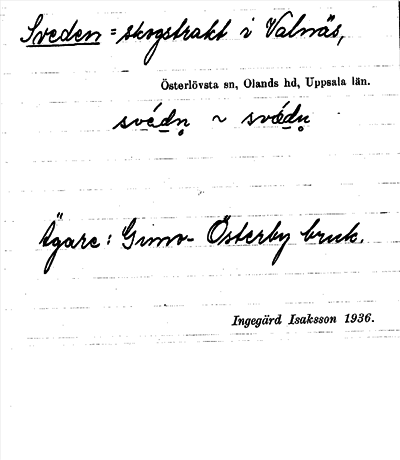 Sveden = skogstrakt i Valnäs,
Österlövsta sn, Olands hd, Uppsala län.
svédn̥ ~ svádn̥
Ägare: Gimo-Österby bruk.
Ingegärd Isaksson 1936.